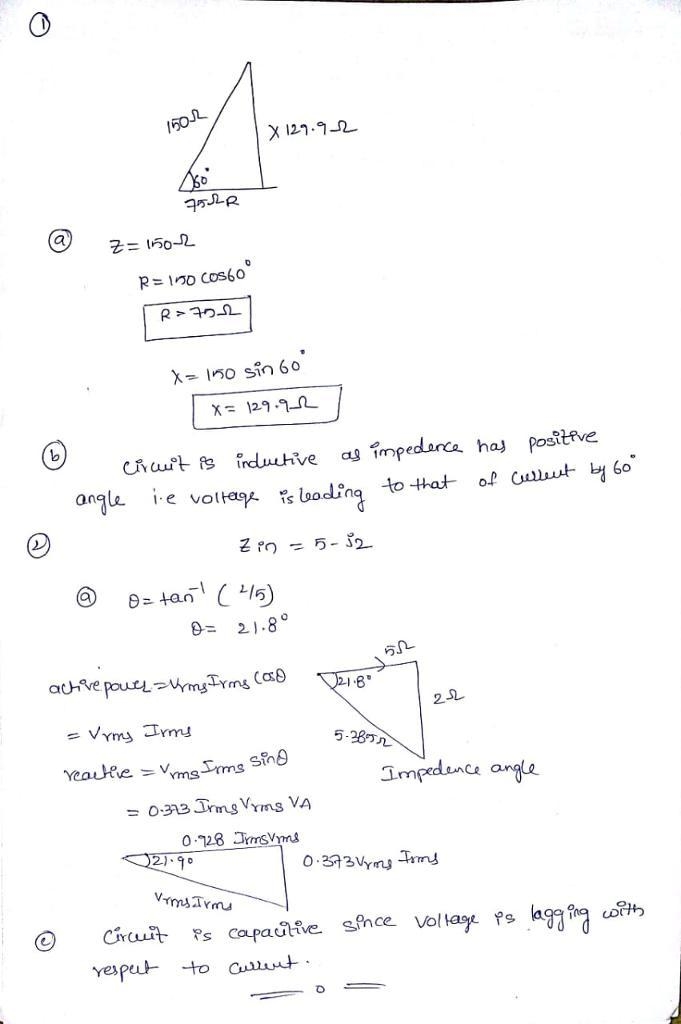 ①
150Ω
X 129.9Ω
60°
75Ω R
ⓐ Z = 150Ω
R = 150 cos60°
R = 75Ω
X = 150 sin 60°
X = 129.9Ω
ⓑ circuit is inductive as impedence has positive
angle i.e voltage is leading to that of current by 60°
② Zin = 5 - j2
ⓐ θ = tan⁻¹ (2/5)
θ = 21.8°
5Ω
active power = Vrms Irms Cosθ
21.8°
2Ω
= Vrms Irms
5.385Ω
reactive = Vrms Irms sinθ
Impedence angle
= 0.373 Irms Vrms VA
0.928 Irms Vrms
21.90
0.373 Vrms Irms
Vrms Irms
ⓒ Circuit is capacitive since voltage is lagging with
respect to current.